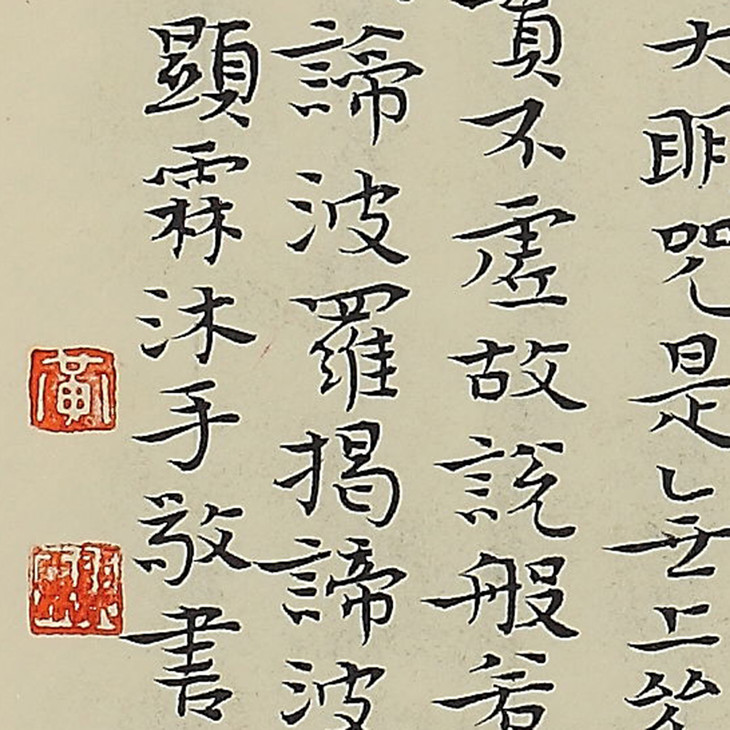 大明咒是無上咒
實不虛故說般若
諦波羅揭諦波
顯霖沐手敬書
黃